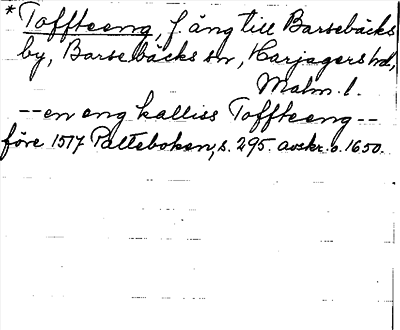 * Toffteeng, f. äng till Barsebäcks
by, Barsebäcks sn, Harjagers hd,
Malm. l.
-- en eng kalliss Toffteeng --
före 1517 Palteboken, s. 295. avskr. o. 1650.